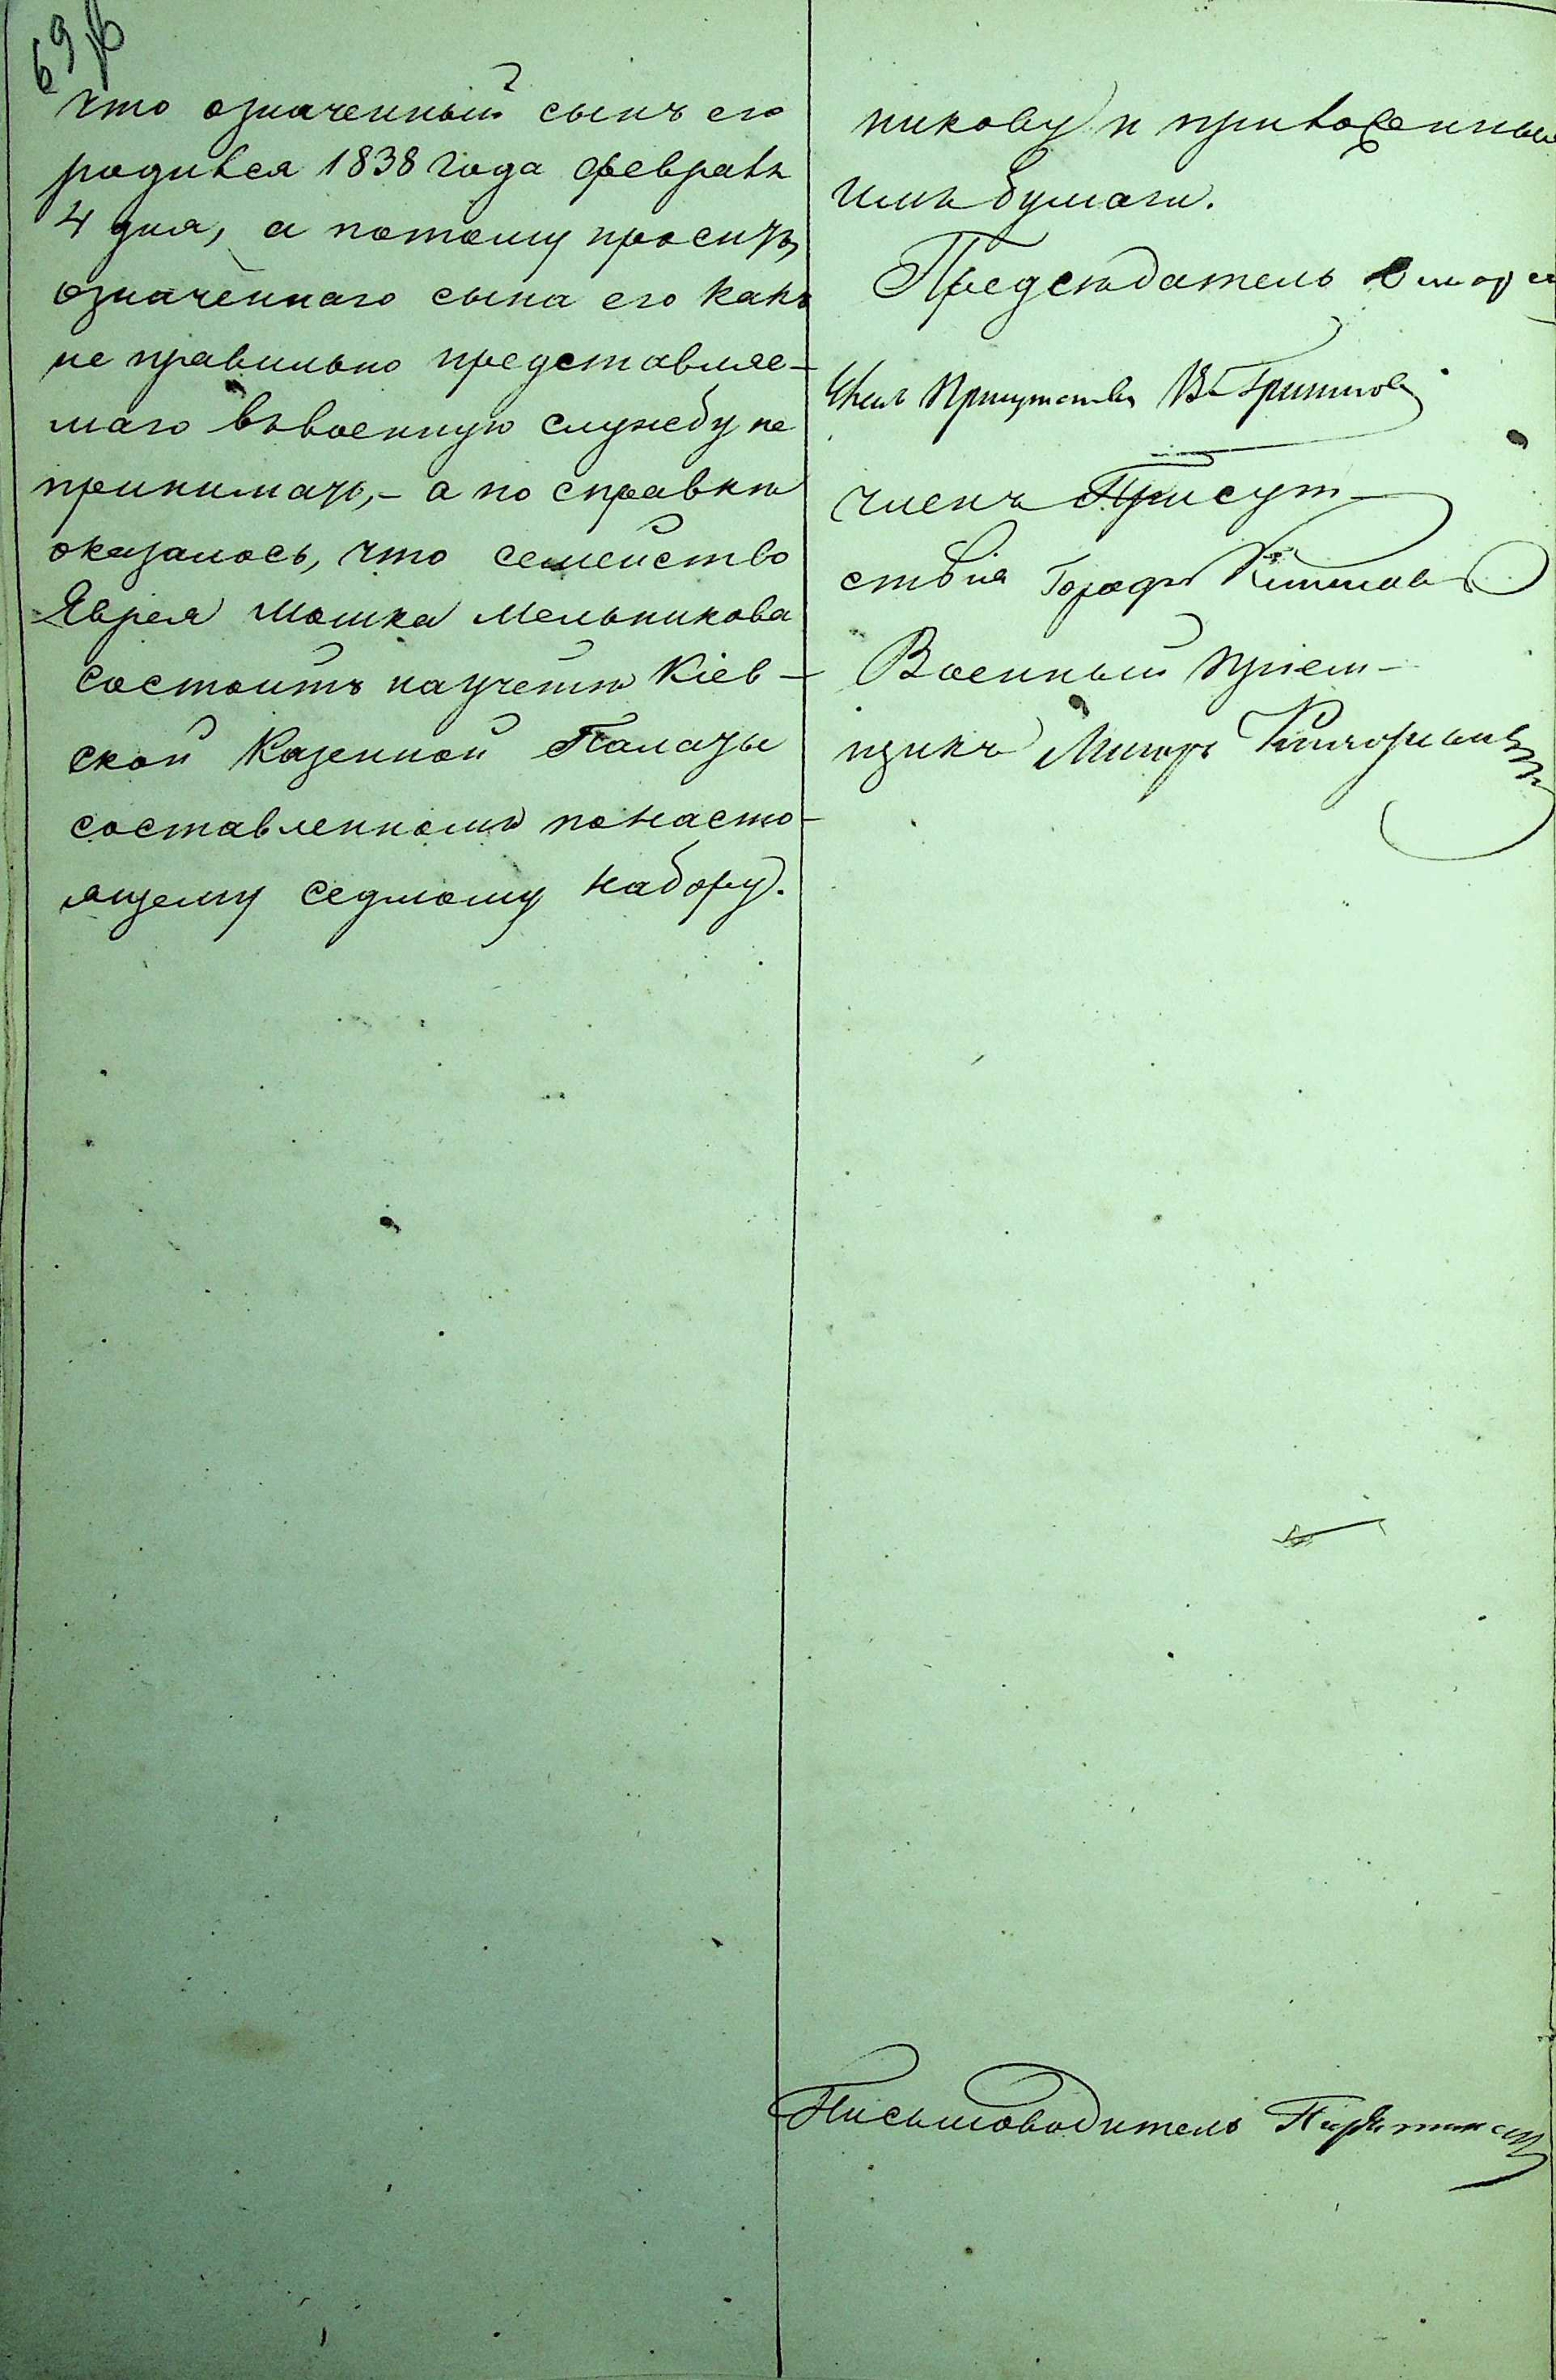 69
что означенный сынъ его
родился 1838 года февраля
4 дня, а потому проситъ,
означеннаго сына его какъ
не правильно представляе-
маго въ военную службу не
принимать, - а по справкѣ
оказалось, что семейство
Яврея Мошка Мельникова
состоитъ на учетѣ Кіев-
ской Казенной Палаты
составленномъ по насто-
ящему седмому набору.
никову и приложенныя
имъ бумаги.
Предсѣдатель
Члень Присутствія
членъ Присут-
ствія
Военный пріем-
щикъ Маіоръ
Письмоводитель